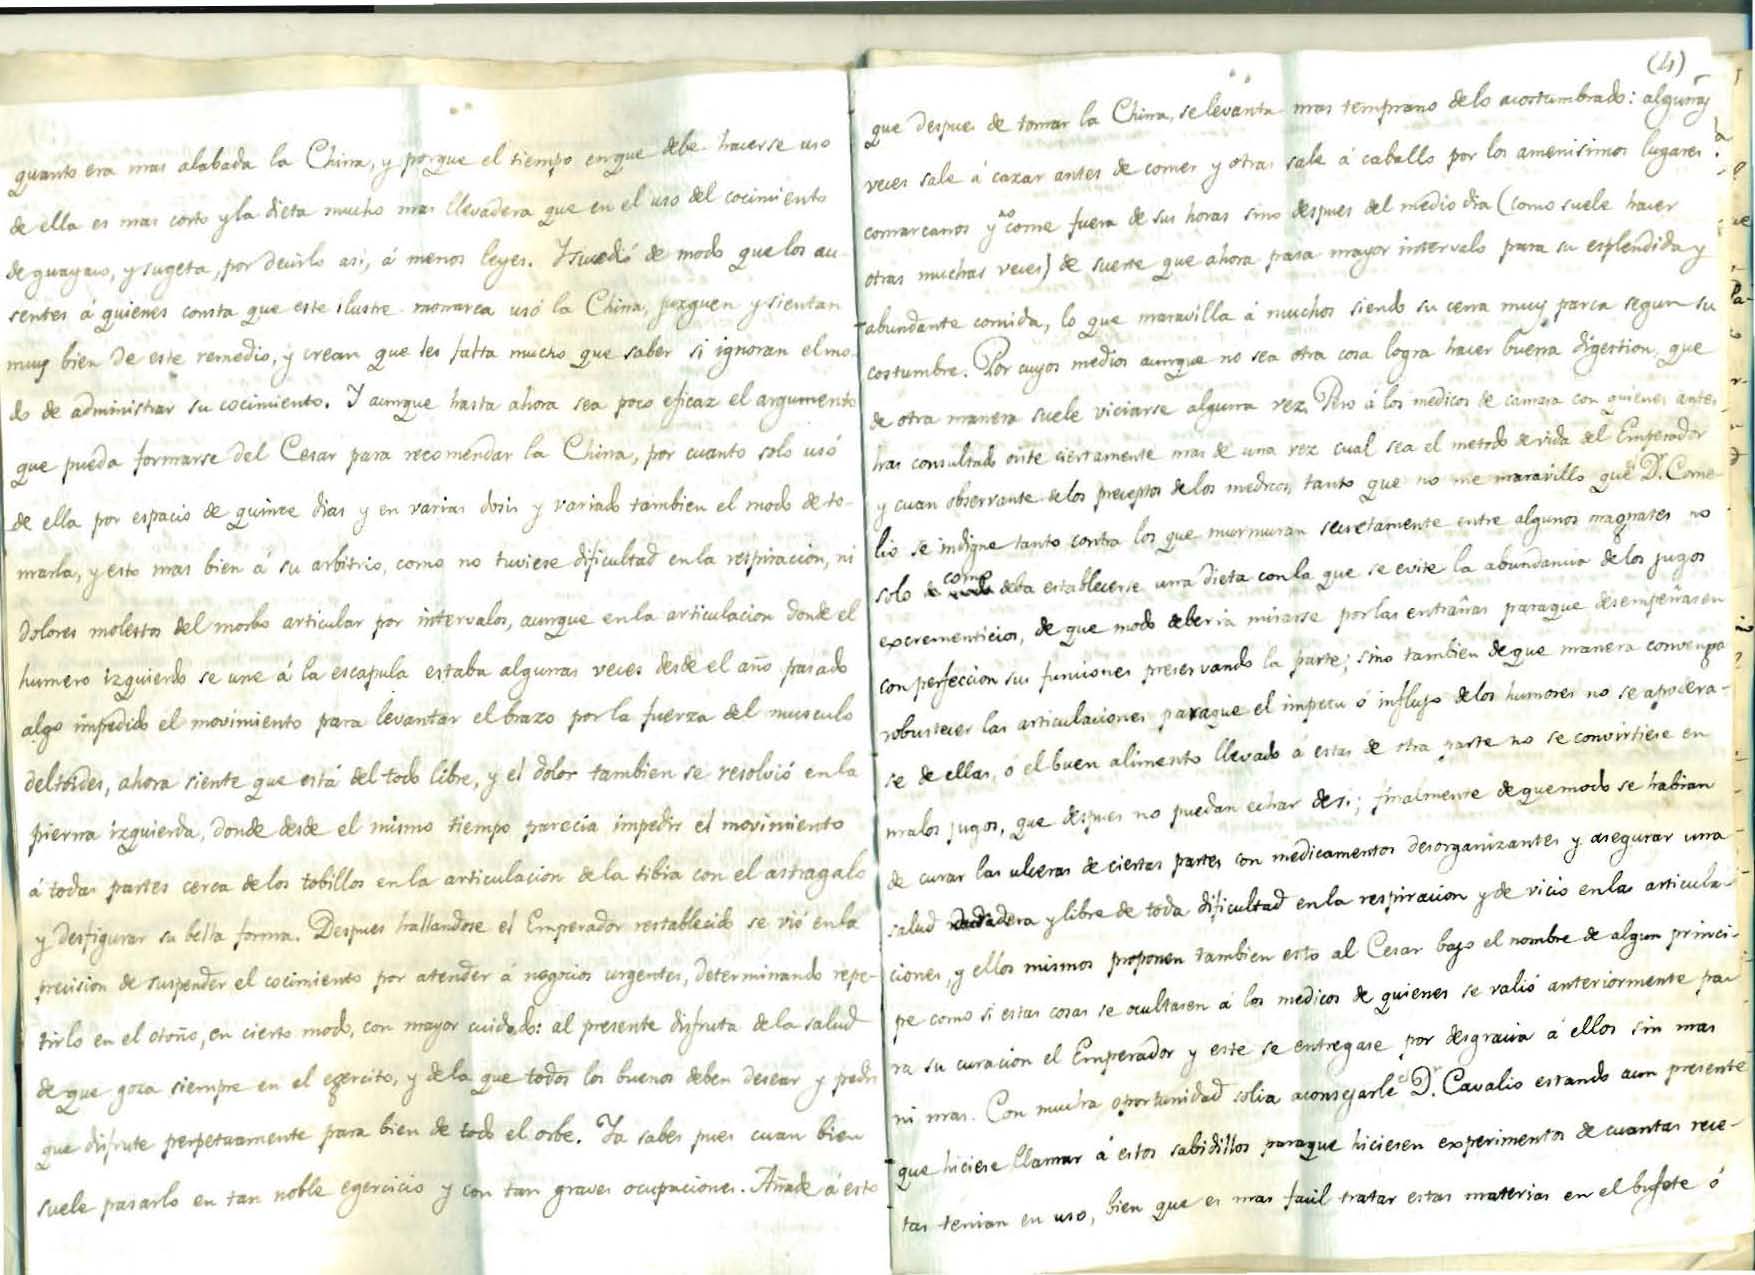 quanto era mas alabada la China, y porque el tiempo enque debe hacerse uso
de ella es mas corto y la dieta mucho mas llevadera que en el uso del cocimiento
de guayaco, y sugeta, por decirlo asi, á menos leyes. Y sucedió de modo que los au-
sentes á quienes consta que este ilustre monarca usó la China, juzguen y sientan
muy bien de este remedio, y crean que les falta mucho que saber si ignoran el mo-
do de administrar su cocimiento. Y aunque hasta ahora sea poco eficaz el argumento
que pueda formarse del Cesar para recomendar la China, por cuanto solo usó
de ella por espacio de quince dias y en varias dosis y variado tambien el modo de to-
marla, y esto mas bien á su arbitrio, como no tuviese dificultad en la respiracion, ni
dolores molestos del morbo articular por intervalos, aunque en la articulacion donde el
humero izquierdo se une á la escapula estaba algunas veces desde el año pasado
algo impedido el movimiento para levantar el brazo por la fuerza del musculo
deltóides, ahora siente que está del todo libre, y el dolor tambien se resolvió en la
pierna izquierda, donde desde el mismo tiempo parecia impedir el movimiento
á todas partes cerca de los tobillos en la articulacion de la tibia con el astragalo
y desfigurar su bella forma. Despues hallandose el Emperador restablecido se vió en la
precision de suspender el cocimiento por atender á negocios urgentes, determinando repe-
tirlo en el otoño, en cierto modo, con mayor cuidado: al presente disfruta de la salud
de que goza siempre en el egercito, y de la que todos los buenos deben desear y pedir
que disfrute perpetuamente para bien de todo el orbe. Ya sabes pues cuan bien
suele pasarlo en tan noble egercicio y con tan graves ocupaciones. Añade á esto
(4)
que despues de tomar la China, se levanta mas temprano de lo acostumbrado: algunas
veces sale á cazar antes de comer y otras sale á caballo por los amenisimos lugares
comarcanos y no come fuera de sus horas sino despues del medio dia (como suele hacer
otras muchas veces) de suerte que ahora pasa mayor intervalo para su esplendida y
abundante comida, lo que maravilla á muchos siendo su cena muy parca segun su
costumbre. Por cuyos medios aunque no sea otra cosa logra hacer buena digestion, que
de otra manera suele viciarse alguna vez. Pero á los medicos de camara con quienes antes
has consultado oiste ciertamente mas de una vez cual sea el metodo de vida del Emperador
y cuan observante de los preceptos de los medicos, tanto que no me maravillo que el Dr. Corne-
lio se indigne tanto contra los que murmuran secretamente entre algunos magnates no
solo de como deba establecerse una dieta con la que se evite la abundancia de los jugos
excrementicios, de que modo deberia mirarse por las entrañas paraque desempeñasen
con perfeccion sus funciones preservando la parte; sino tambien de que manera convenga
robustecer las articulaciones paraque el impetu ó influjo de los humores no se apodera-
se de ellas, ó el buen alimento llevado á estas de otra parte no se convirtiese en
malos jugos, que despues no puedan echar de si; finalmente de que modo se habian
de curar las ulceras de ciertas partes con medicamentos desorganizantes y asegurar una
salud duradera y libre de toda dificultad en la respiracion y de vicio en las articula-
ciones, y ellos mismos proponen tambien esto al Cesar bajo el nombre de algun princi-
pe como si estas cosas se ocultasen á los medicos de quienes se valió anteriormente pa-
ra su curacion el Emperador y este se entregase por desgracia á ellos sin mas
ni mas. Con mucha oportunidad solia aconsejarle el Dr. Cavalio estando aun presente
que hiciese llamar á estos sabidillos paraque hiciesen experimentos de cuantas rece-
tas tenian en uso, bien que es mas facil tratar estas materias en el bufete ó